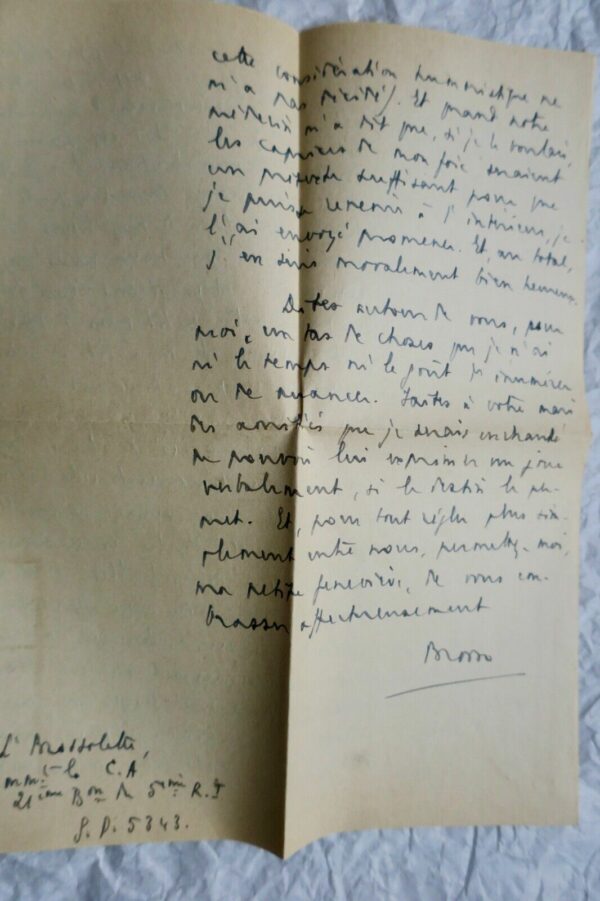 cette considération humoristique ne
m'a pas décidé). Et quand notre
médecin m'a dit que, si je le voulais,
les caprices de mon foie seraient
un prétexte suffisant pour que
je puisse revenir à l'intérieur, je
l'ai envoyé promener. Et, au total,
j'en suis moralement bien heureux.
Dites autour de vous, pour
moi, un tas de choses que je n'ai
ni le temps ni le goût d'énumérer
ou de nuancer. Faites à votre mari
des amitiés que je serais enchanté
de pouvoir lui exprimer un jour
verbalement, si le destin le per-
met. Et, pour tout régler plus sim-
plement entre nous, permettez-moi,
ma petite Geneviève, de vous em-
brasser affectueusement
Brosso
Lt Brossolette,
Cla C.A
21ème Bon du 5ème R.I
S.P. 5343.